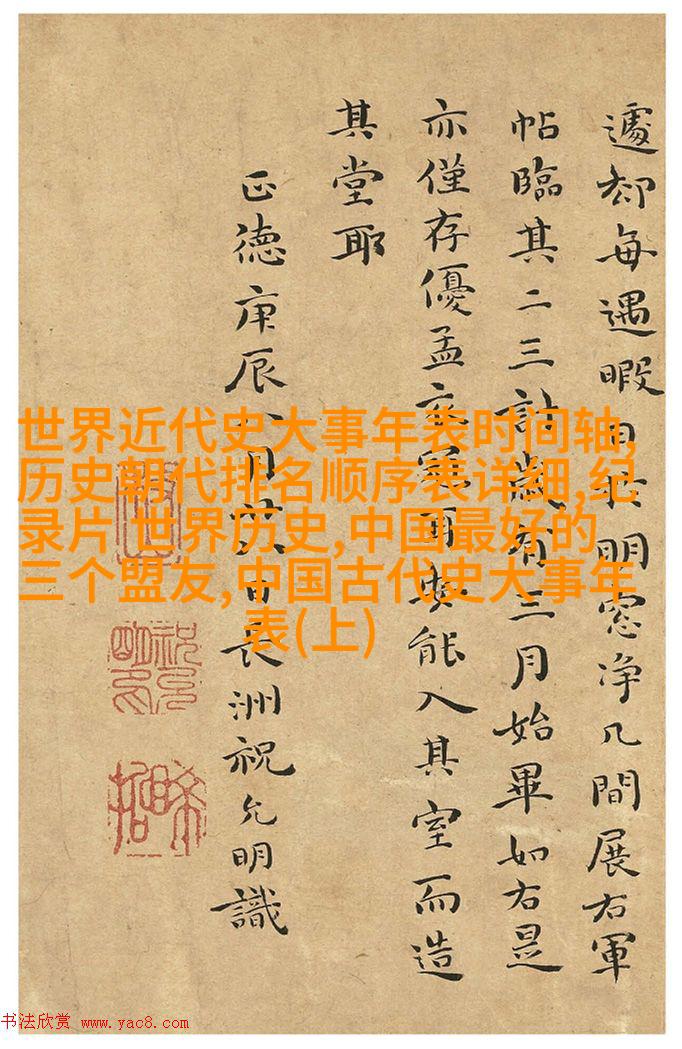 遽却每遇暇日於明窓净几間展右軍
帖臨其二三計歲有三月始畢如右是
亦僅存優孟衣冠能入其室而造
其堂耶
正德庚辰八月日長洲祝允明識
祝允明印
世界近代史大事年表时间轴,
历史朝代排名顺序表详细,纪
录片 世界历史,中国最好的
三个盟友,中国古代史大事年
表(上)
书法欣赏 www.yac8.com